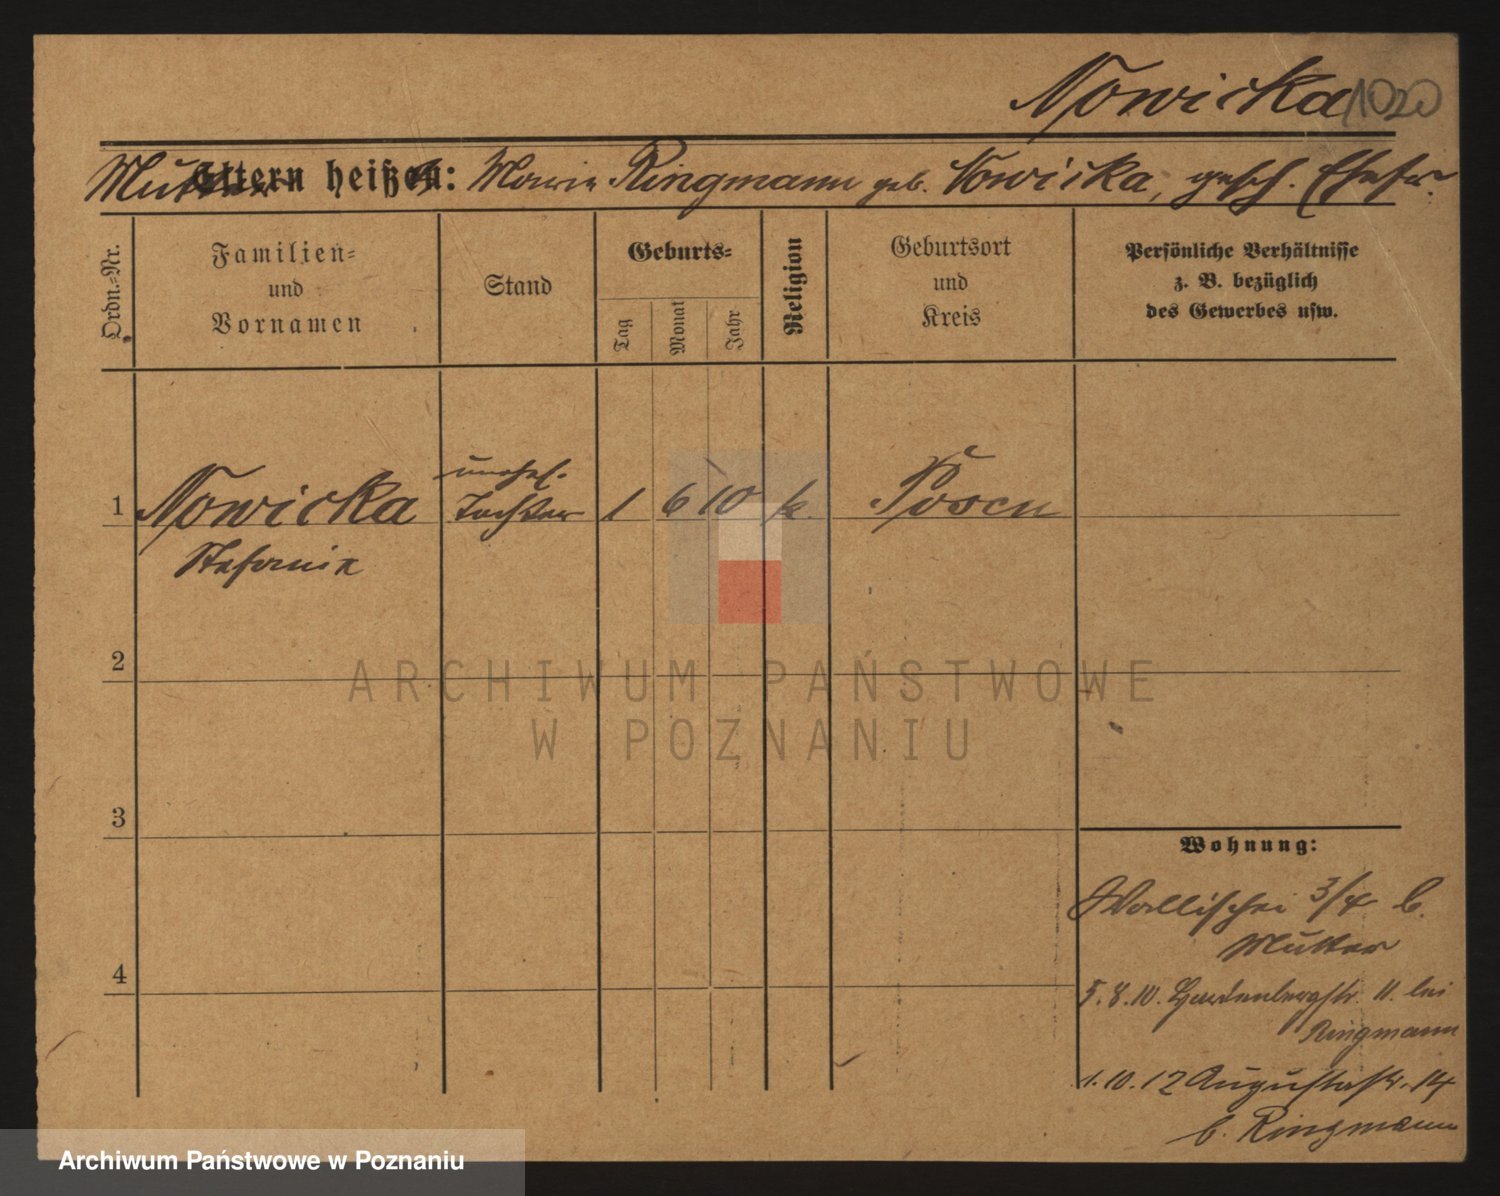 Nowicka 1020
Mutter Eltern heißen: Marie Ringmann geb. Nowicka, gesch. Ehefr.
Ordn.-Nr.
Familien-
und
Vornamen
Stand
Geburts-
Tag
Monat
Jahr
Religion
Geburtsort
und
Kreis
Persönliche Verhältnisse
z. B. bezüglich
des Gewerbes usw.
unehel.
1 Nowicka Tochter 1 6 10 k. Posen
Stefanie
2
ARCHIWUM PAŃSTWOWE
W POZNANIU
3
Wohnung:
Wallischei 3/4 b.
Mutter
4
5.8.10. Hardenbergstr. 11. bei
Ringmann
1.10.12 Augustastr. 14
b. Ringmann
Archiwum Państwowe w Poznaniu